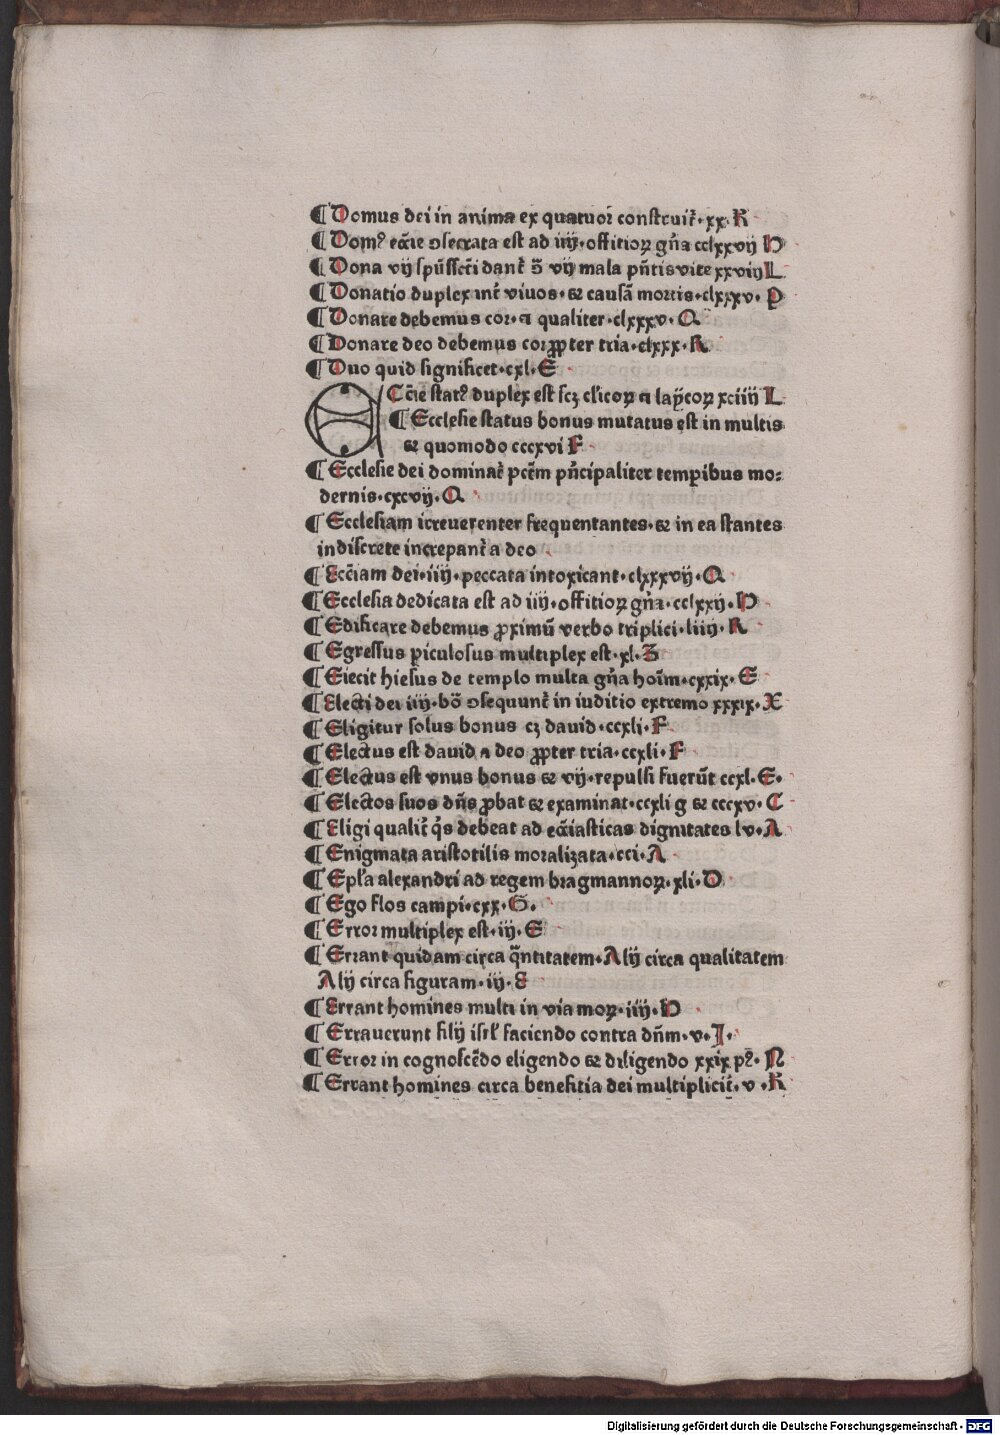 ¶ Domus dei in anima ex quatuor construit᷑·xx·K
¶ Domꝰ ecc̄ie ↄsecrata est ad iiij·offitioꝝ gn̄a cclxxvij H
¶ Dona vij sp̄ūssc̄ti dant᷑ ↄ̄ vij mala pn̄tis vite xxviij L
¶ Donatio duplex int᷑ viuos·⁊ causā mortis·clxxxv·P
¶ Donare debemus cor·⁊ qualiter·clxxxv·Q
¶ Donare deo debemus cor ꝓpter tria·clxxx·K
¶ Duo quid significet·cxl·E
ECcīe statꝰ duplex est scꝫ cl̄icoꝝ ⁊ layc̄oꝝ xciiij L
¶ Ecclesie status bonus mutatus est in multis
⁊ quomodo cccxvi F
¶ Ecclesie dei dominat᷑ pctm̄ pn̄cipaliter temꝑibus mo⸗
dernis·cxcvij·Q
¶ Ecclesiam irreuerenter frequentantes·⁊ in ea stantes
indiscrete increpant᷑ a deo
¶ Ecc̄iam dei·iiij·peccata intoxicant·clxxxvij·Q
¶ Ecclesia dedicata est ad iiij·offitioꝝ gn̄a·cclxxij·H
¶ Edificare debemus ꝓximū verbo triplici·liiij·K
¶ Egressus ꝑiculosus multiplex est·xl·Z
¶ Eiecit hiesus de templo multa gn̄a hoīm·cxxix·E
¶ Electi dei iiij·bō ↄsequunt᷑ in iuditio extremo xxxix·X
¶ Eligitur solus bonus cꝫ dauid·ccxli·F
¶ Electus est dauid a deo ꝓpter tria·ccxli·F
¶ Electus est vnus bonus ⁊ vij·repulsi fuerūt ccxl·E·
¶ Electos suos dn̄s ꝓbat ⁊ examinat·ccxli g ⁊ cccxv·C
¶ Eligi qualit᷑ q̄s debeat ad ecc̄iasticas dignitates lv·A
¶ Enigmata aristotilis moralizata·cci·A
¶ Epl̄a alexandri ad regem bragmannoꝝ·xli·D
¶ Ego flos campi·cxx·G·
¶ Error multiplex est·iij·E
¶ Errant quidam circa q̄ntitatem·Alij circa qualitatem
Alij circa figuram·iij·E
¶ Errant homines multi in via moꝝ·iiij·H
¶ Errauerunt filij isrl̄ faciendo contra dn̄m·v·I·
¶ Error in cognoscēdo eligendo ⁊ diligendo xxix pꝰ·N
¶ Errant homines circa benefitia dei multiplicit᷑·v·K
Digitalisierung gefördert durch die Deutsche Forschungsgemeinschaft - DFG